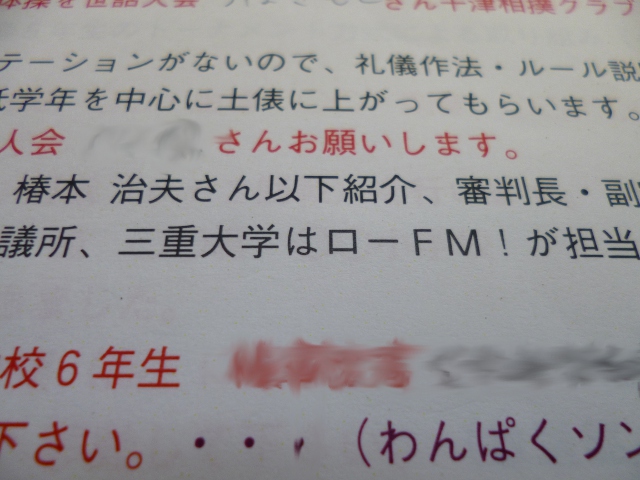 体操を世話人会 さん千津相撲クラブ
テーションがないので、礼儀作法・ルール説
低学年を中心に土俵に上がってもらいます。
人会 さんお願いします。
椿本 治夫さん以下紹介、審判長・副
議所、三重大学はローFM！が担当
校6年生
下さい。・・・（わんぱくソン